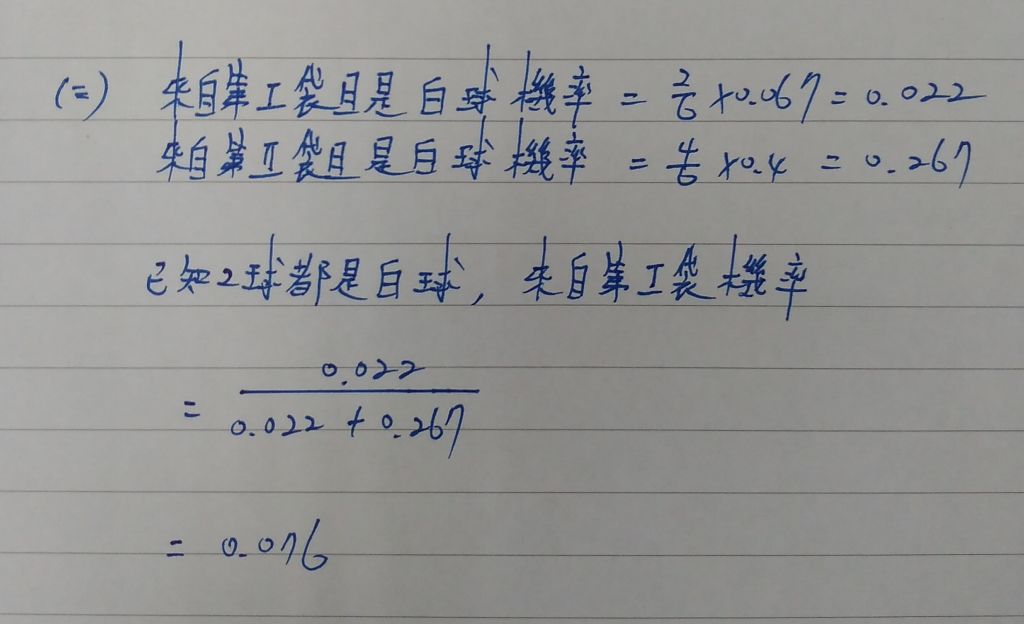 (二) 來自第I袋且是白球機率 = 2/6 × 0.067 = 0.022
來自第II袋且是白球機率 = 4/6 × 0.4 = 0.267
已知2球都是白球, 來自第I袋機率
= 0.022 / (0.022 + 0.267)
= 0.076